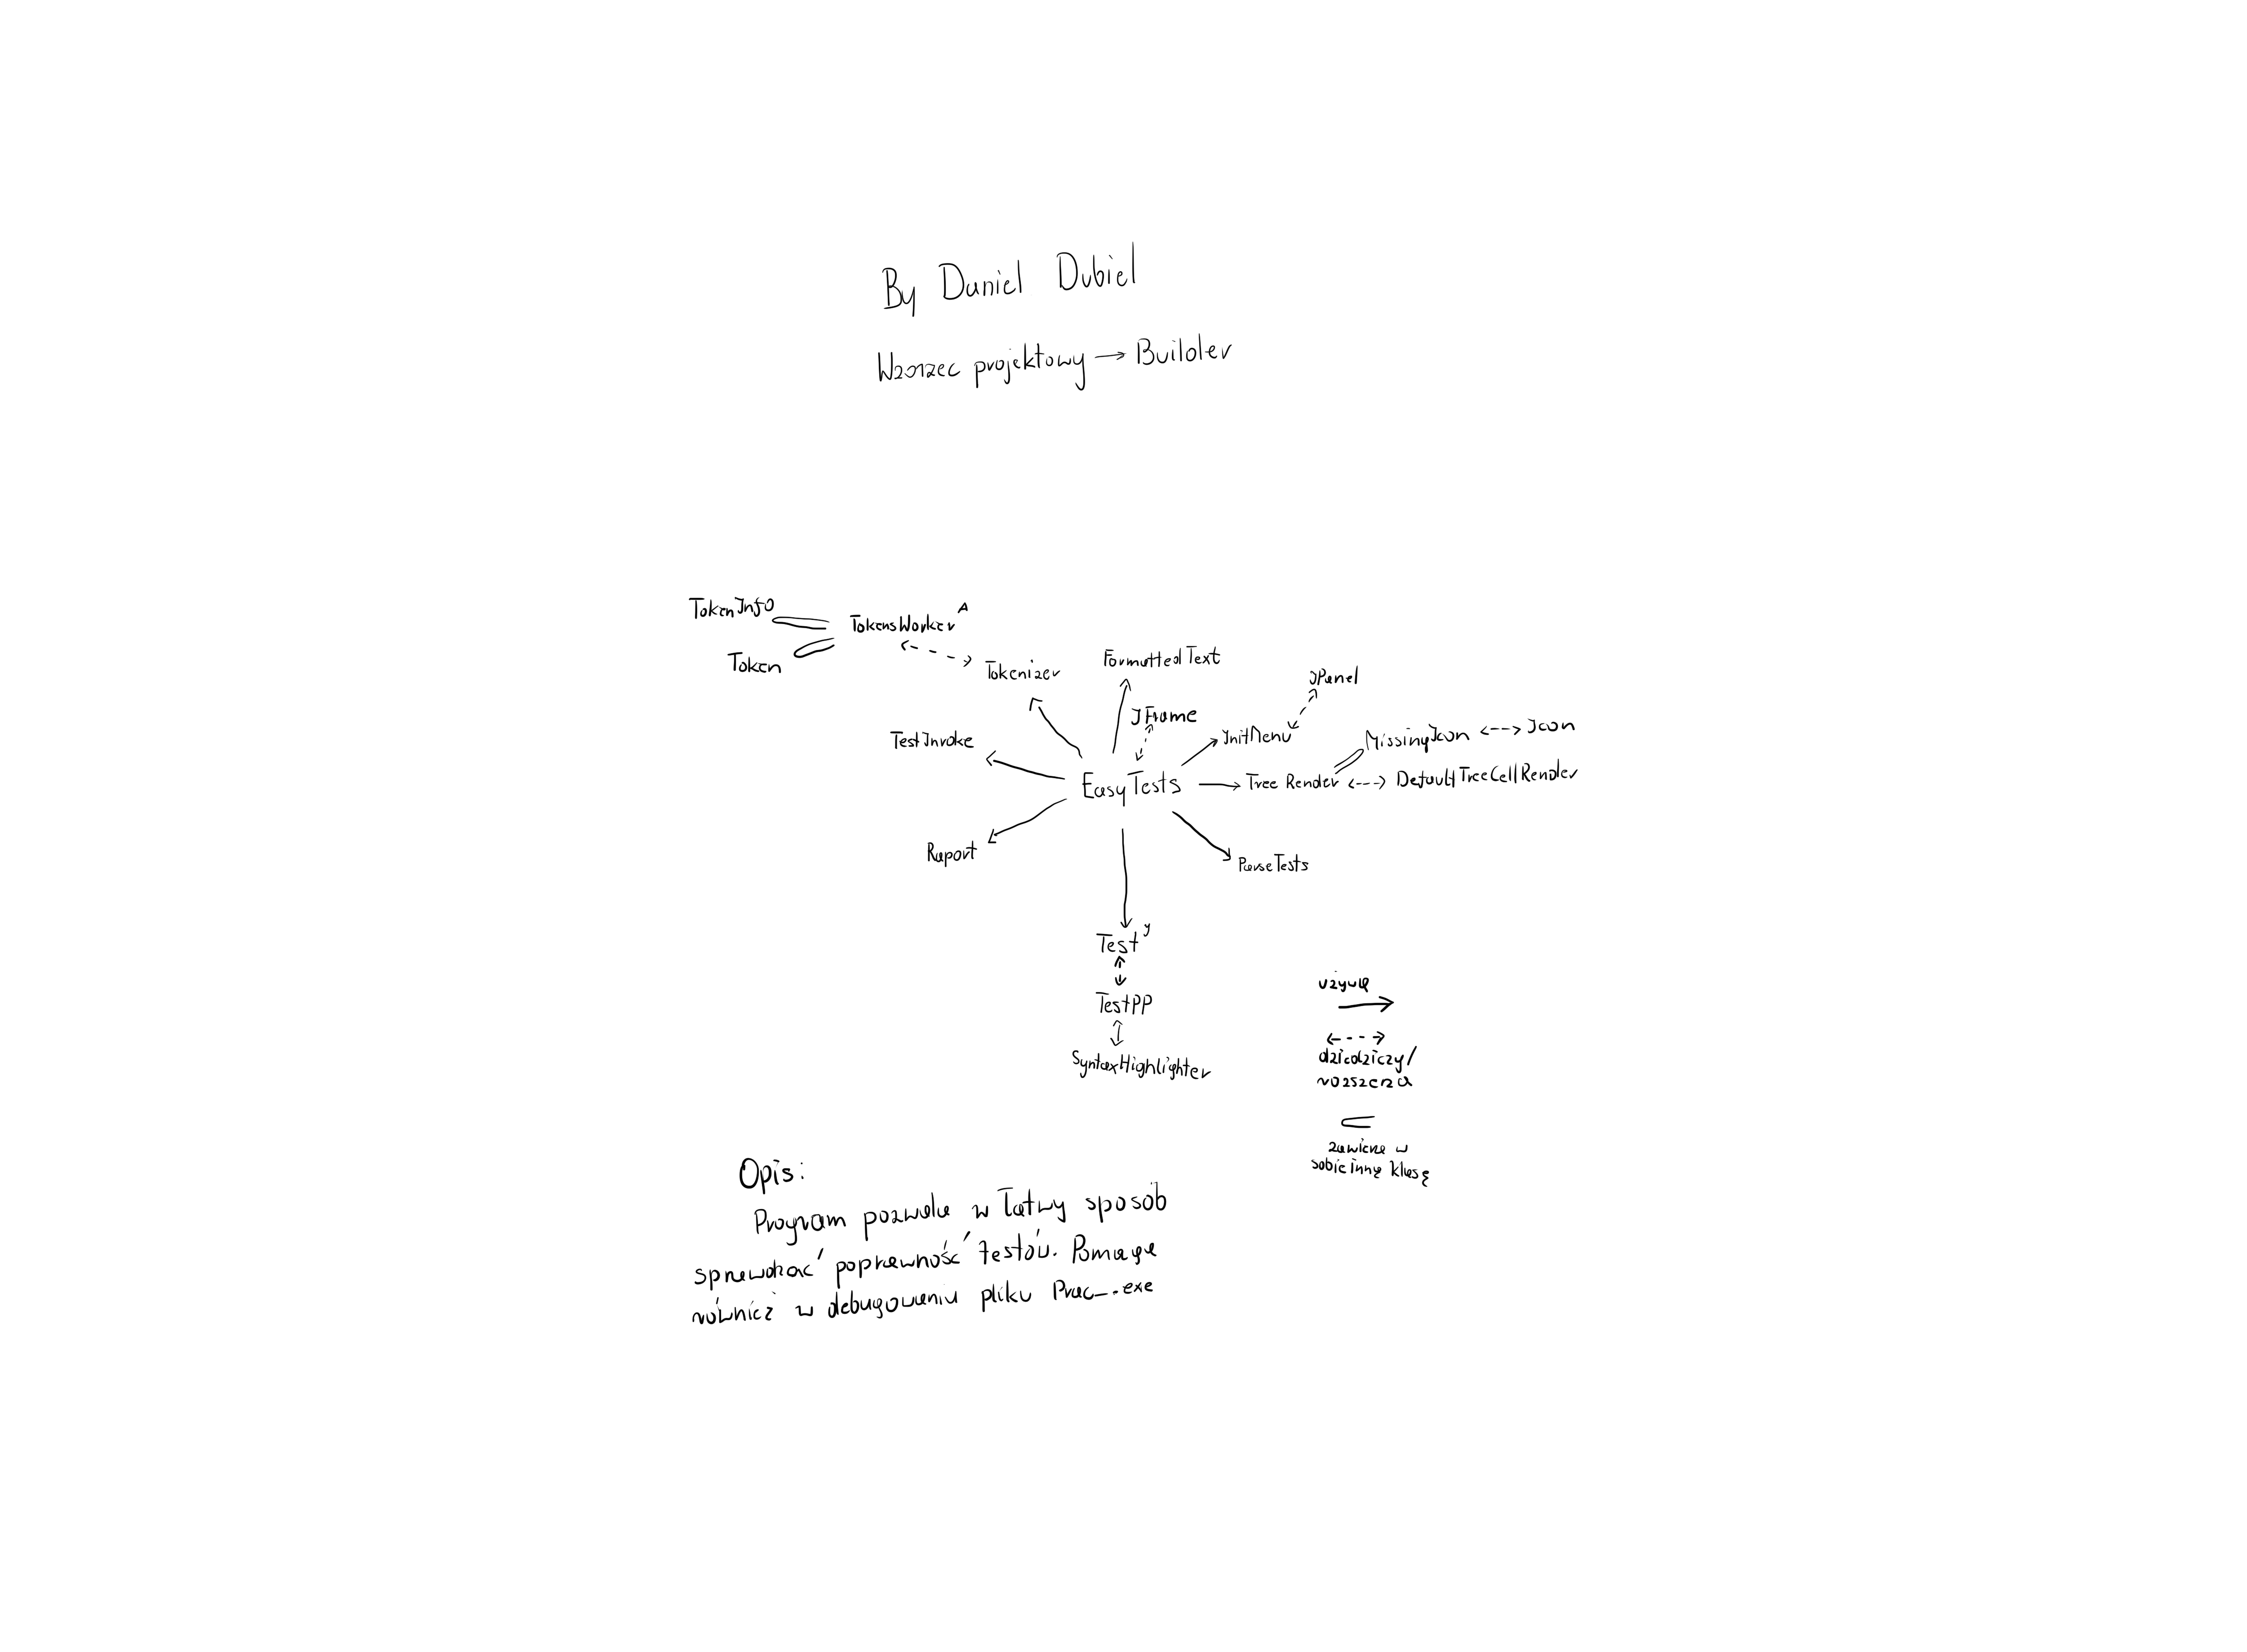 By Daniel Dubiel
Wzorzec projektowy → Builder
TokenInfo
TokensWorker A
Token
Tokenizer
FormattedText
JPanel
JFrame
TestInvoke
InitMenu
MissingIcon
Icon
EasyTests
Tree Render
DefaultTreeCellRender
Raport
ParseTests
Test y
TestPP
SyntaxHighlighter
używa
dziedziczy/
rozszerza
zawiera w
sobie inną klasę
Opis:
Program pozwala w łatwy sposób
sprawdzać poprawność testów. Pomaga
również w debugowaniu pliku Prac_.exe